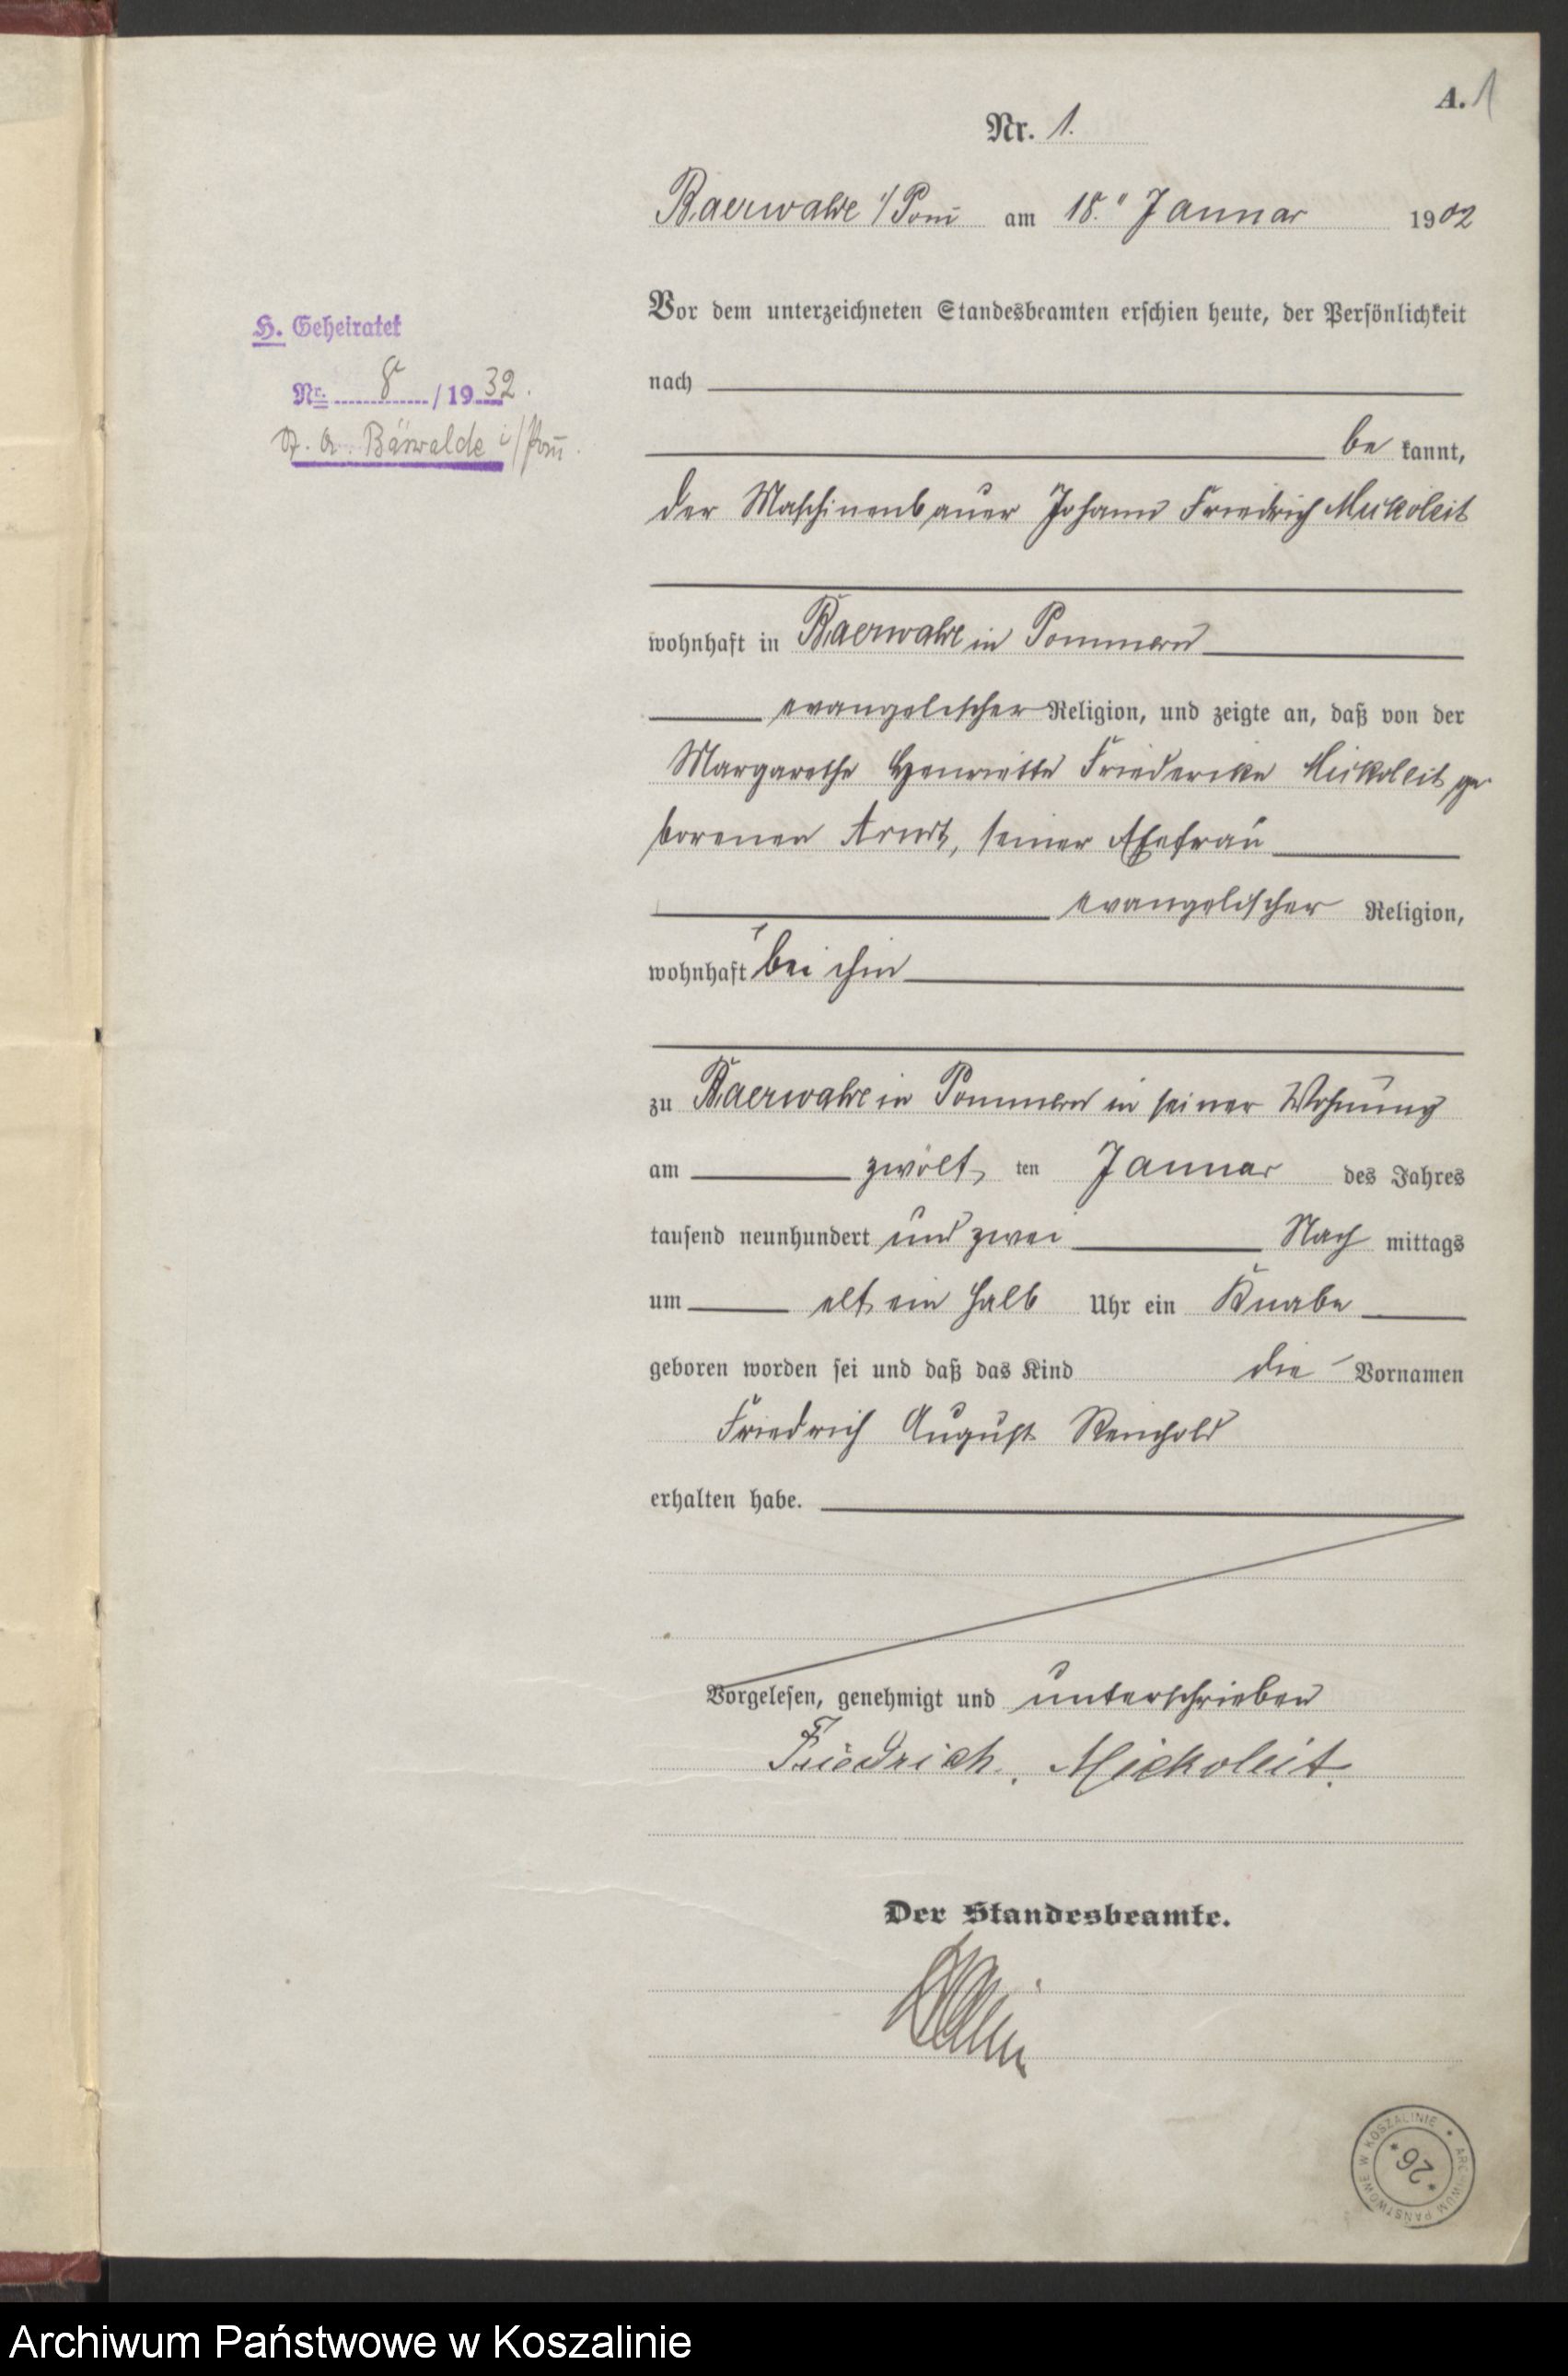 A. 1
Nr. 1.
Baerwalde i/Pom am 18ten Januar 1902
H. Geheiratet
Nr. 8 / 1932.
St. A. Bärwalde i/Pom.
Vor dem unterzeichneten Standesbeamten erschien heute, der Persönlichkeit
nach
be kannt,
der Maschinenbauer Johann Friedrich Mickoleit
wohnhaft in Baerwalde in Pommern
evangelischer Religion, und zeigte an, daß von der
Margarethe Henriette Friederike Mickoleit ge
borenen Arndt, seiner Ehefrau
evangelischer Religion,
wohnhaft bei ihm
zu Baerwalde in Pommern in seiner Wohnung
am zwölf ten Januar des Jahres
tausend neunhundert und zwei Nach mittags
um elf ein halb Uhr ein Knabe
geboren worden sei und daß das Kind die Vornamen
Friedrich August Reinhold
erhalten habe.
Vorgelesen, genehmigt und unterschrieben
Friedrich Mickoleit.
Der Standesbeamte.
ARCHIWUM PAŃSTWOWE W KOSZALINIE
* 26 *
Archiwum Państwowe w Koszalinie